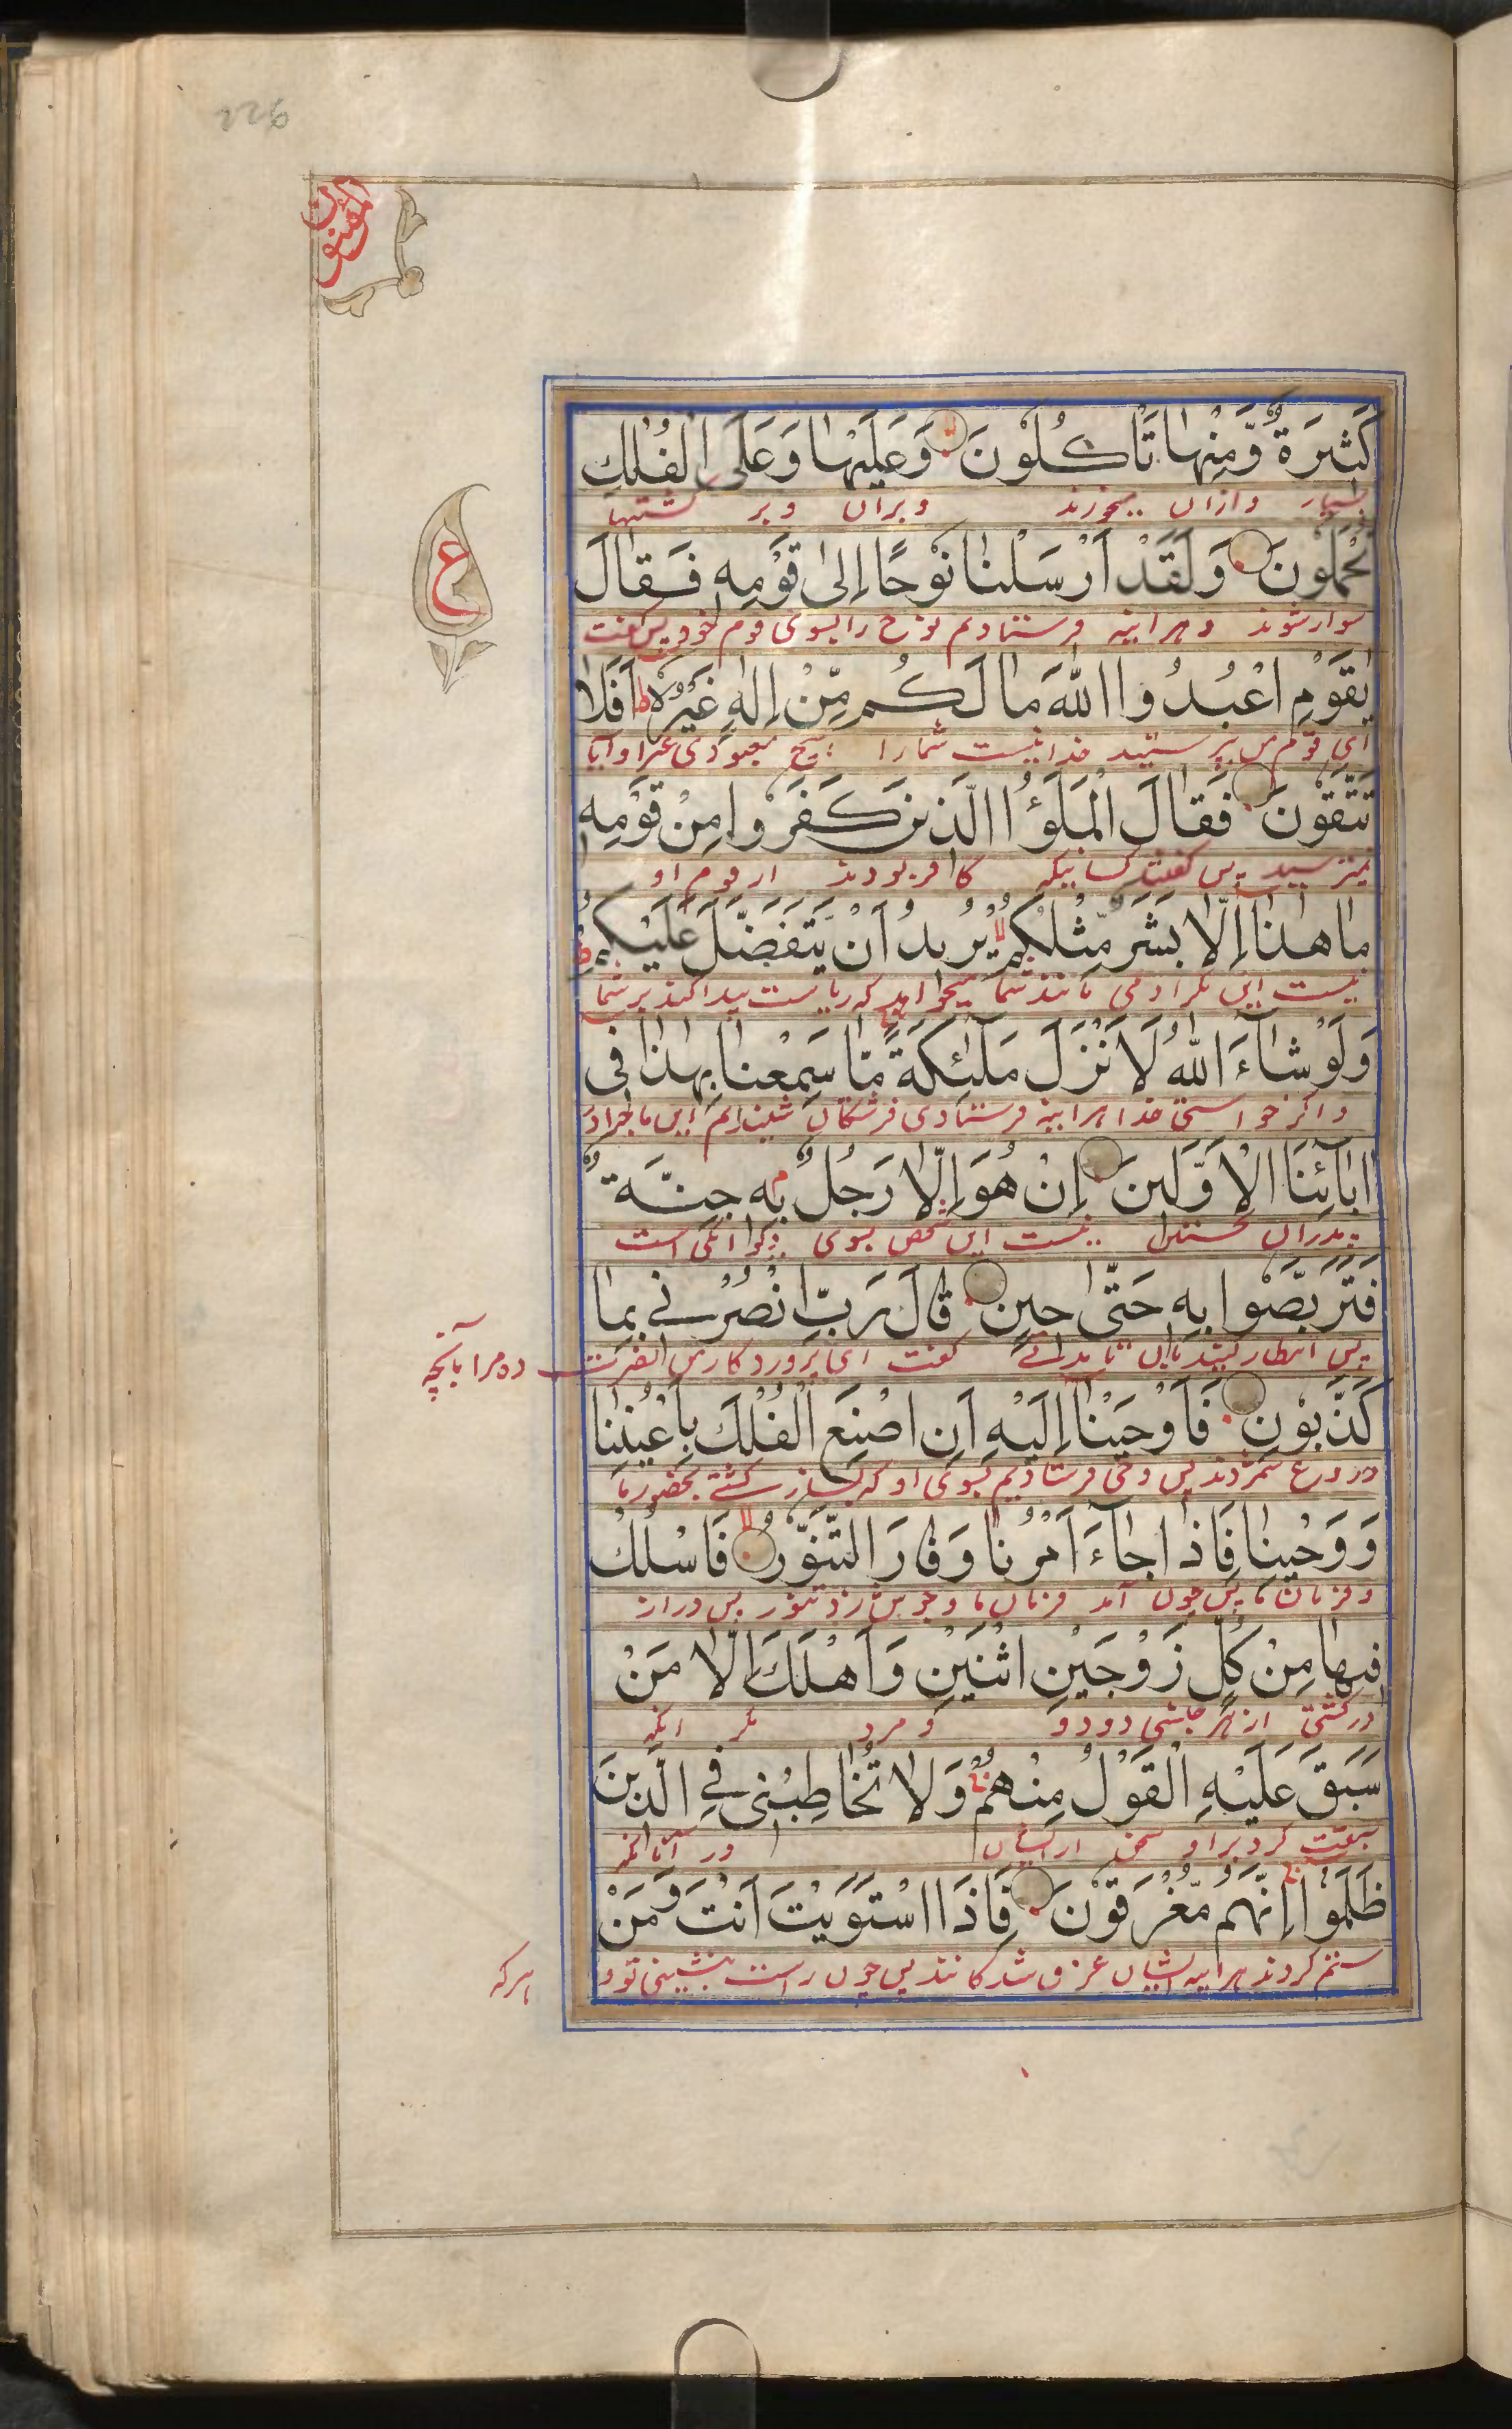 226
المؤمنون
كَثِيْرَةٌ وَّمِنْهَا تَأْكُلُوْنَ وَعَلَيْهَا وَعَلَى الْفُلْكِ
بسیار وازان میخورند و بران و بر کشتیها
ع
تُحْمَلُوْنَ وَلَقَدْ اَرْسَلْنَا نُوْحًا اِلٰى قَوْمِهٖ فَقَالَ
سوار شوند و هراینه فرستادیم نوح را بسوی قوم خود پس گفت
يٰقَوْمِ اعْبُدُوا اللّٰهَ مَا لَكُمْ مِّنْ اِلٰهٍ غَيْرُهٗ ط اَفَلَا
ای قوم من پرستید خدا نیست شمارا هیچ معبودی غیر او آیا
تَتَّقُوْنَ فَقَالَ الْمَلَؤُا الَّذِيْنَ كَفَرُوْا مِنْ قَوْمِهٖ
نمیترسید پس گفتند کسانیکه کافر بودند از قوم او
مَا هٰذَا اِلَّا بَشَرٌ مِّثْلُكُمْ لا يُرِيْدُ اَنْ يَّتَفَضَّلَ عَلَيْكُمْ ط
نیست این مگر ادمی مانند شما میخواهد که ریاست پیدا کند بر شما
وَلَوْ شَآءَ اللّٰهُ لَاَنْزَلَ مَلٰٓئِكَةً مَّا سَمِعْنَا بِهٰذَا فِيْ
و اگر خواستی خدا هراینه فرستادی فرشتگان نشنیدایم این ماجرا در
اٰبَآئِنَا الْاَوَّلِيْنَ اِنْ هُوَ اِلَّا رَجُلٌ بِهٖ جِنَّةٌ
پدران نخستین نیست این شخص بوی دیوانگی است
فَتَرَبَّصُوْا بِهٖ حَتّٰى حِيْنٍ قَالَ رَبِّ انْصُرْنِيْ بِمَا
پس انتظار کشید بان تا مدتے گفت ای پروردگار من نصرت ده مرا بآنچه
كَذَّبُوْنِ فَاَوْحَيْنَا اِلَيْهِ اَنِ اصْنَعِ الْفُلْكَ بِاَعْيُنِنَا
دروغ شمردند پس وحی فرستادیم بسوی او که بساز کشتے بحضور ما
وَوَحْيِنَا فَاِذَا جَآءَ اَمْرُنَا وَفَارَ التَّنُّوْرُ لا فَاسْلُكْ
و فرمان ما پس چون آمد فرمان ما و جوش زد تنور پس درار
فِيْهَا مِنْ كُلٍّ زَوْجَيْنِ اثْنَيْنِ وَاَهْلَكَ اِلَّا مَنْ
در کشتی از هر جنسی دو دو و مرد مگر انکه
سَبَقَ عَلَيْهِ الْقَوْلُ مِنْهُمْ وَلَا تُخَاطِبْنِيْ فِي الَّذِيْنَ
سبقت کرد بر او سخن از ایشان در آنانکه
ظَلَمُوْا اِنَّهُمْ مُّغْرَقُوْنَ فَاِذَا اسْتَوَيْتَ اَنْتَ وَمَنْ
ستم کردند هراینه ایشان غرق شدگانند پس چون راست بنشینی تو و هرکه